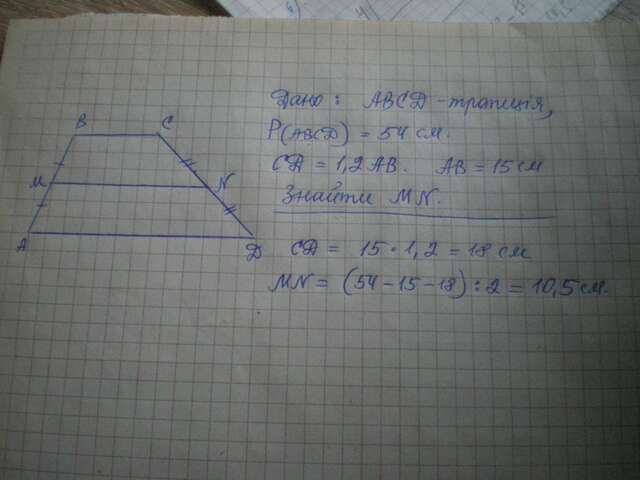 Дано: ABCD - трапеція,
P(ABCD) = 54 см.
CD = 1,2 AB. AB = 15 см
Знайти MN.
B C
M N
A D
CD = 15 · 1,2 = 18 см
MN = (54 - 15 - 18) : 2 = 10,5 см.